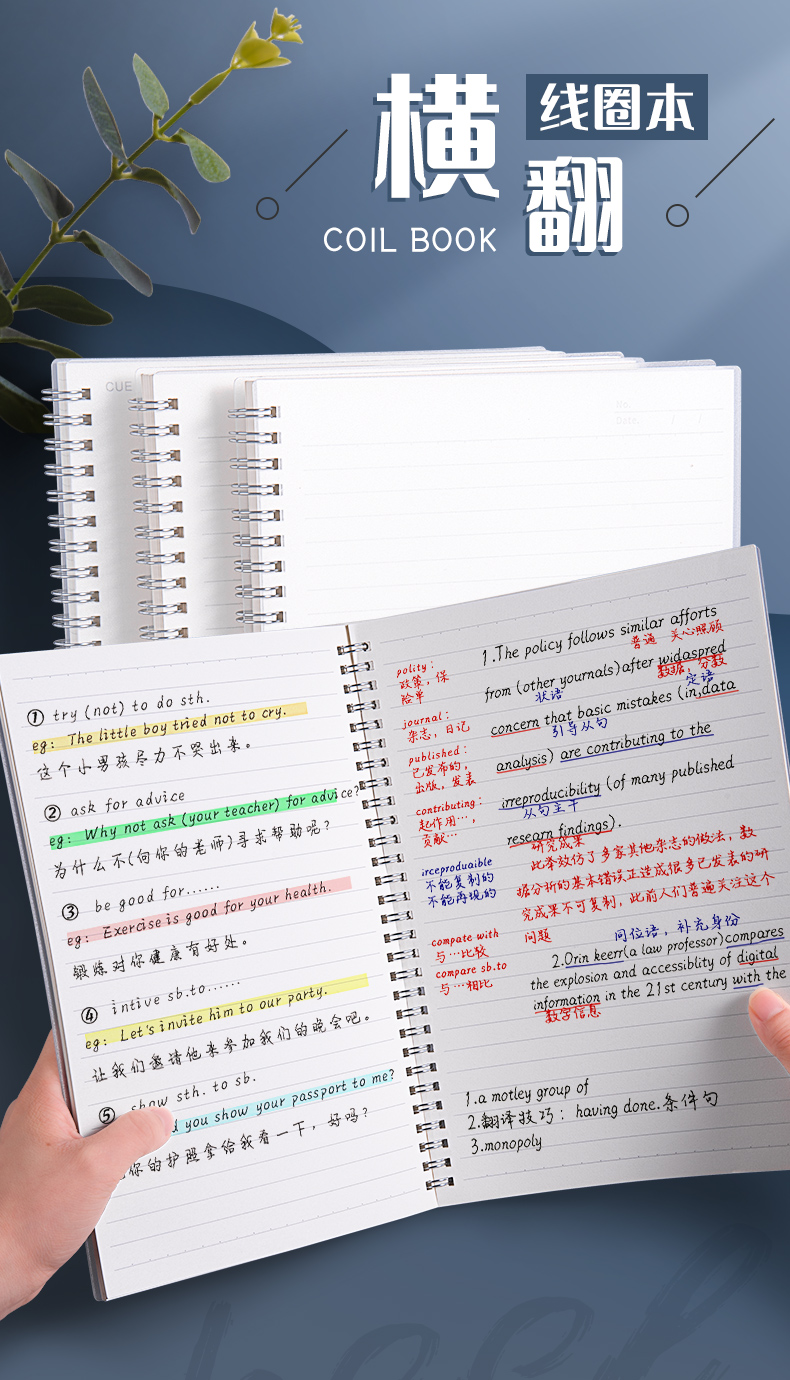 横
线圈本
翻
COIL BOOK
CUE
No.
Date.
① try (not) to do sth.
eg: The little boy tried not to cry.
这个小男孩尽力不哭出来。
② ask for advice
eg: Why not ask (your teacher) for advice?
为什么不(向你的老师)寻求帮助呢?
③ be good for......
eg: Exercise is good for your health.
锻炼对你健康有好处。
④ intive sb.to......
eg: Let's invite him to our party.
让我们邀请他来参加我们的晚会吧。
⑤ show sth. to sb.
d you show your passport to me?
你的护照拿给我看一下，好吗?
polity:
政策，保
险单
journal:
杂志，日记
published:
已发布的，
出版，发表
contributing:
起作用…，
贡献…
irceproduaible
不能复制的
不能再现的
compate with
与…比较
compare sb.to
与…相比
1.The policy follows similar afforts
普通 关心照顾
from (other yournals) after widaspred
状语
数据，分数
定语
concern that basic mistakes (in,data
引导从句
analysis) are contributing to the
irreproducibility (of many published
从句主干
researn findings).
研究成果
此举效仿了多家其他杂志的做法，数
据分析的基本错误正造成很多已发表的研
究成果不可复制，此前人们普遍关注这个
问题
同位语，补充身份
2.Orin keerr(a law professor)compares
the explosion and accessiblity of digital
information in the 21st century with the
数字信息
1.a motley group of
2.翻译技巧：having done.条件句
3.monopoly